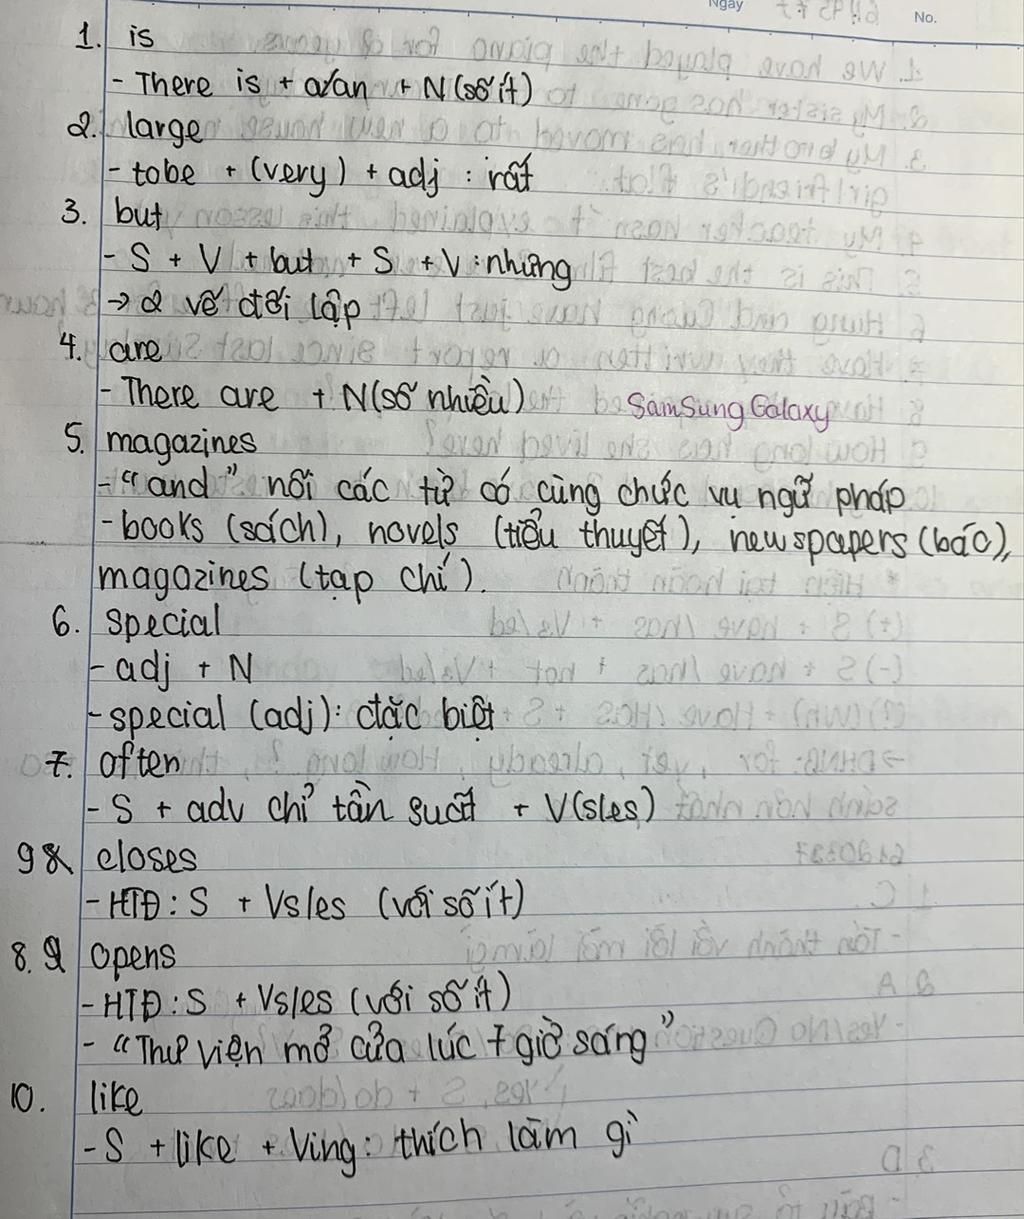 Ngày
No.
1. is
- There is + a/an + N (số ít)
2. large
- tobe + (very) + adj : rất
3. but
- S + V + but + S + V : nhưng
→ 2 vế đối lập
4. are
- There are + N(số nhiều)
SamSung Galaxy
5. magazines
- “and” nối các từ có cùng chức vụ ngữ pháp
- books (sách), novels (tiểu thuyết), newspapers (báo),
magazines (tạp chí).
6. special
- adj + N
- special (adj): đặc biệt
7. often
- S + adv chỉ tần suất + V(s/es)
9 closes
- HTĐ : S + Vs/es (với số ít)
8. opens
- HTĐ : S + Vs/es (với số ít)
- “Thư viện mở cửa lúc 7 giờ sáng”
10. like
- S + like + Ving : thích làm gì